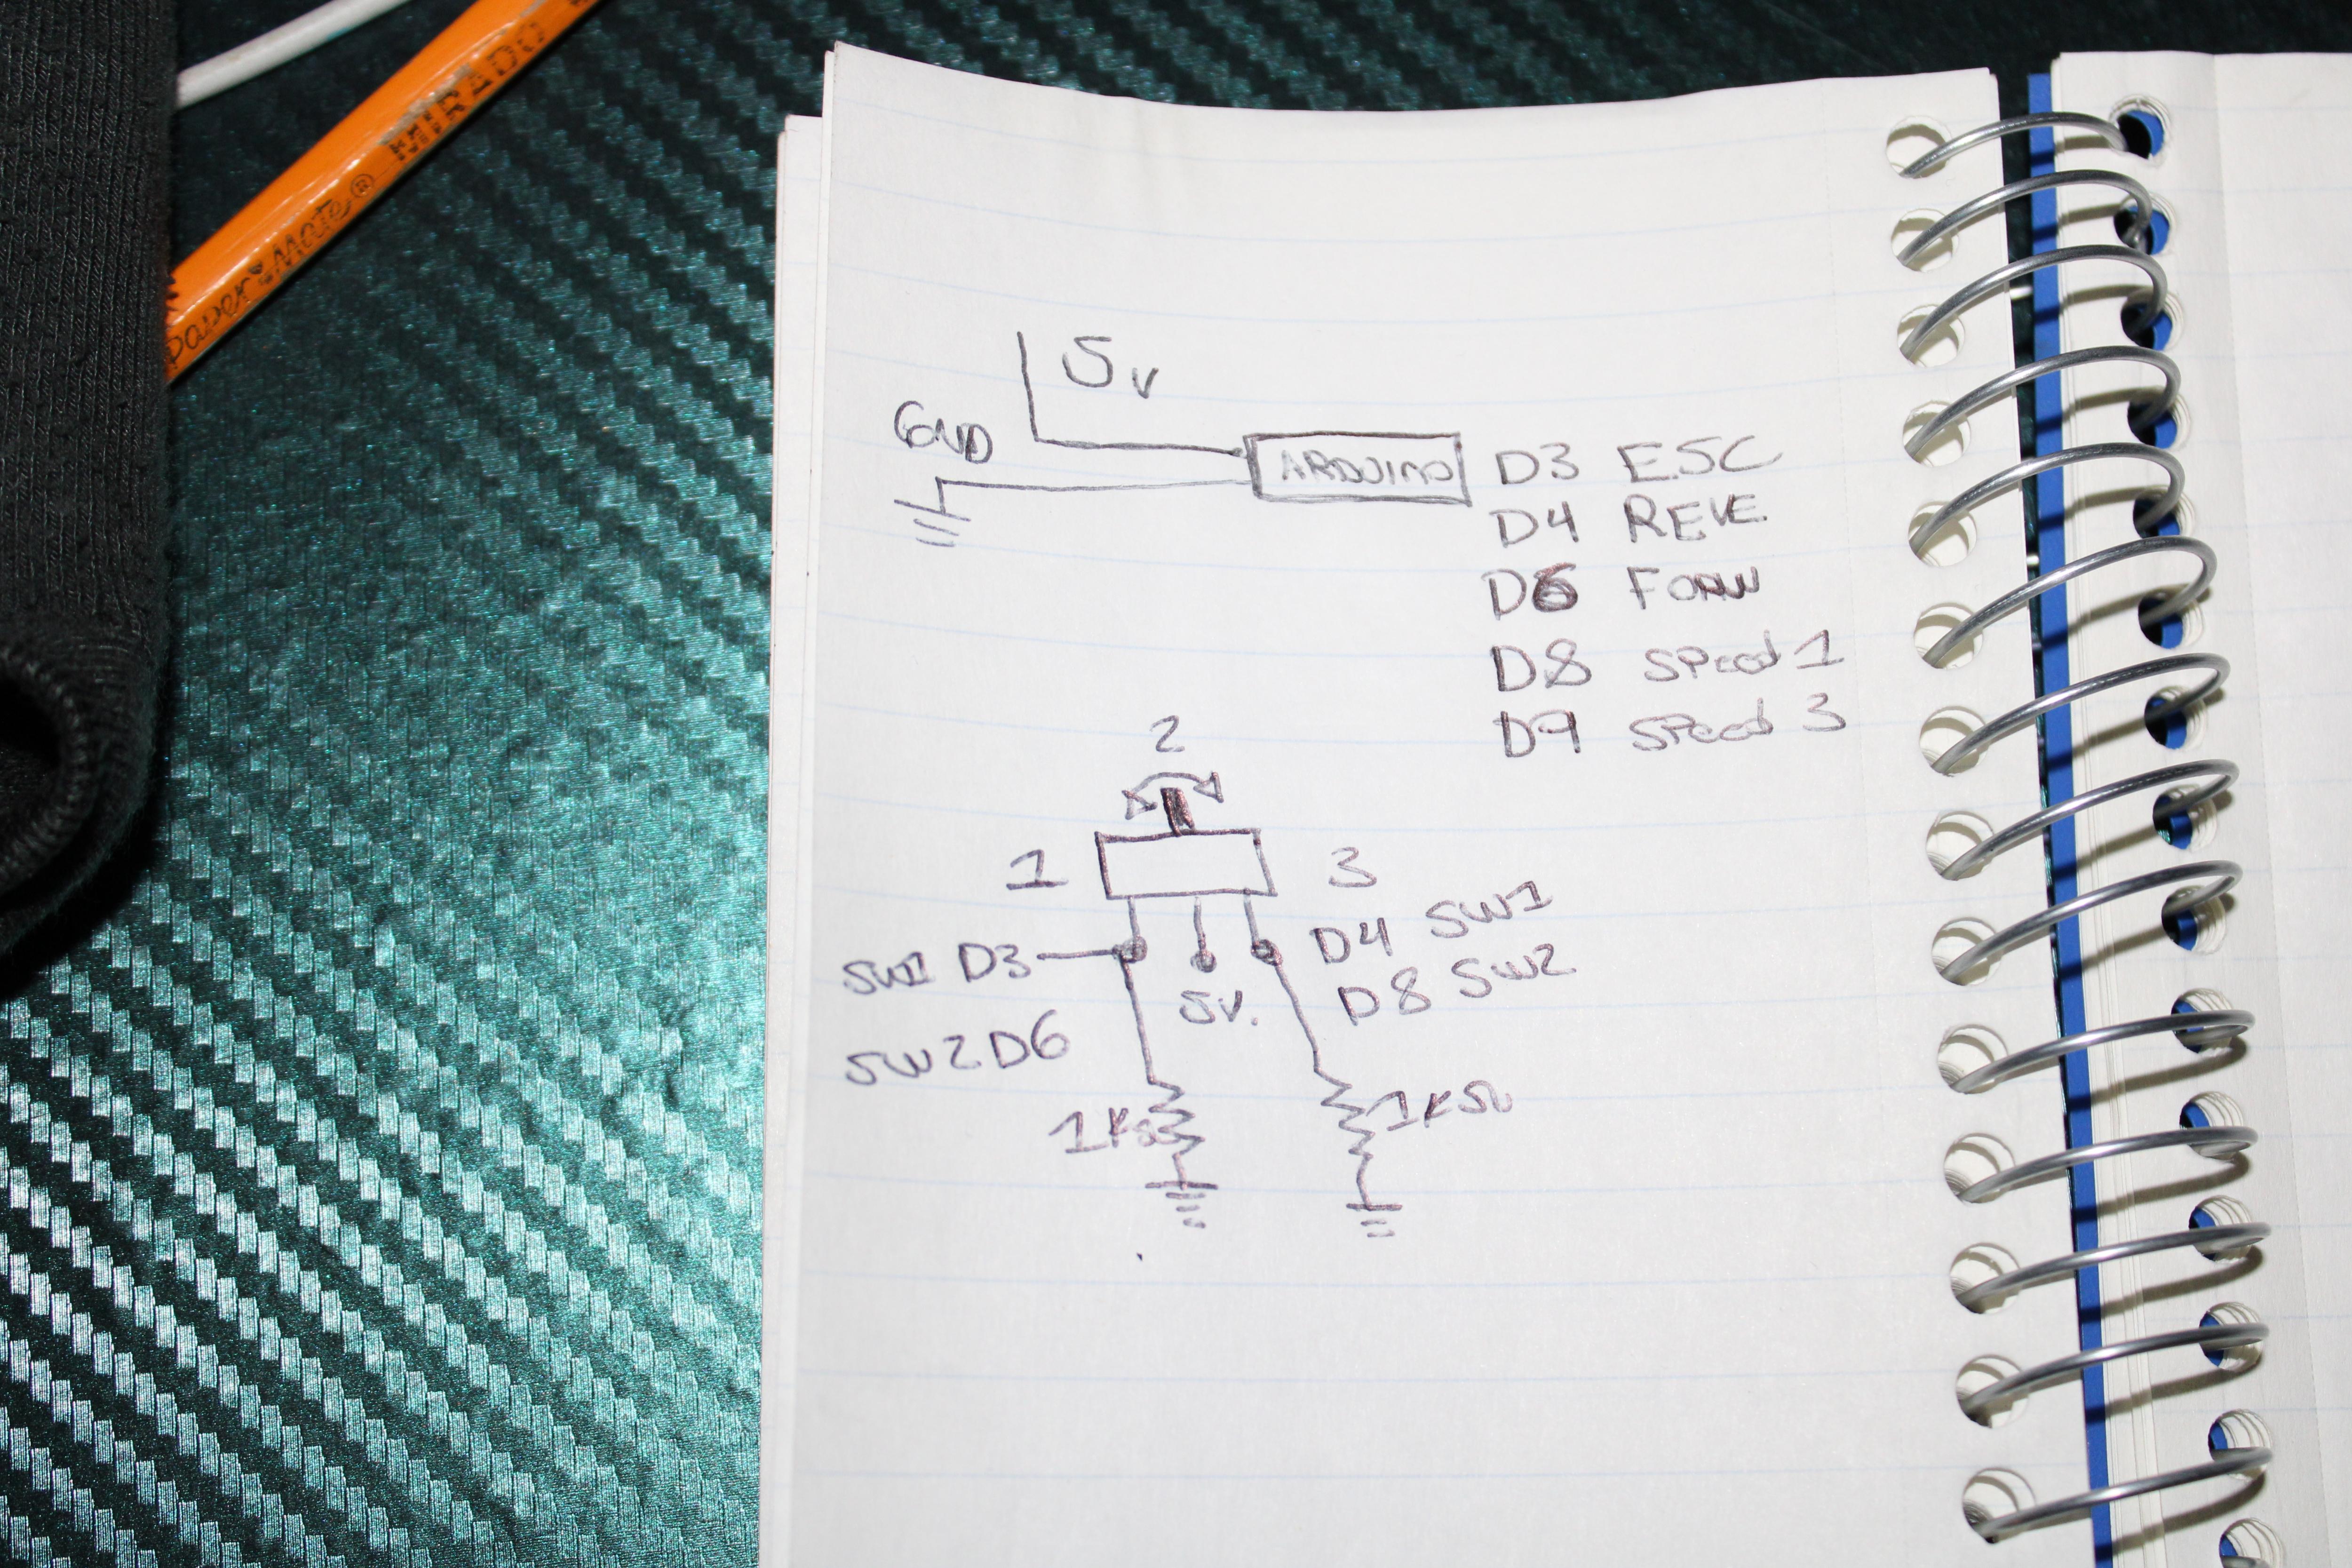 Papermate® MIRADO
5v
GND
ARDUINO
D3 ESC
D4 REVE
D6 FORW
D8 SPeed 1
D9 SPeed 3
2
1
3
SW1 D3
D4 SW1
5V.
D8 SW2
SW2 D6
1KΩ
1KΩ